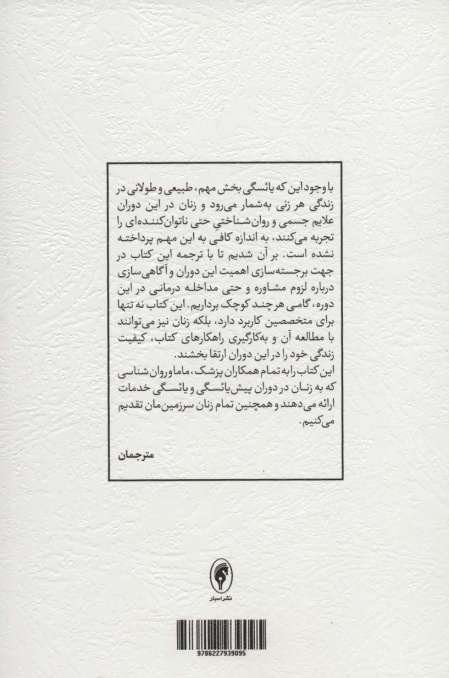 با وجود این که یائسگی بخش مهم، طبیعی و طولانی در
زندگی هر زنی به‌شمار می‌رود و زنان در این دوران
علایم جسمی و روان‌شناختی حتی ناتوان‌کننده‌ای را
تجربه می‌کنند، به اندازه کافی به این مهم پرداخته
نشده است. بر آن شدیم تا با ترجمه این کتاب در
جهت برجسته‌سازی اهمیت این دوران و آگاهی‌سازی
درباره لزوم مشاوره و حتی مداخله درمانی در این
دوره، گامی هر چند کوچک برداریم. این کتاب نه تنها
برای متخصصین کاربرد دارد، بلکه زنان نیز می‌توانند
با مطالعه آن و به‌کارگیری راهکارهای کتاب، کیفیت
زندگی خود را در این دوران ارتقا بخشند.
این کتاب را به تمام همکاران پزشک، ماما و روان‌شناسی
که به زنان در دوران پیش‌یائسگی و یائسگی خدمات
ارائه می‌دهند و همچنین تمام زنان سرزمین‌مان تقدیم
می‌کنیم.
مترجمان
نشر اسبار
9786227939095